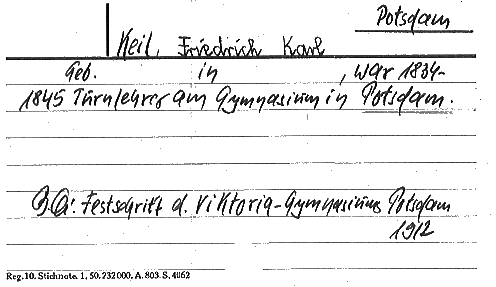 Potsdam
Keil, Friedrich Karl
Geb. in , war 1834-
1845 Turnlehrer am Gymnasium in Potsdam.
B.Qu: Festschrift d. Viktoria-Gymnasiums Potsdam
1912
Reg. 10. Stichnote. 1, 50. 232000, A. 803. S. 4062